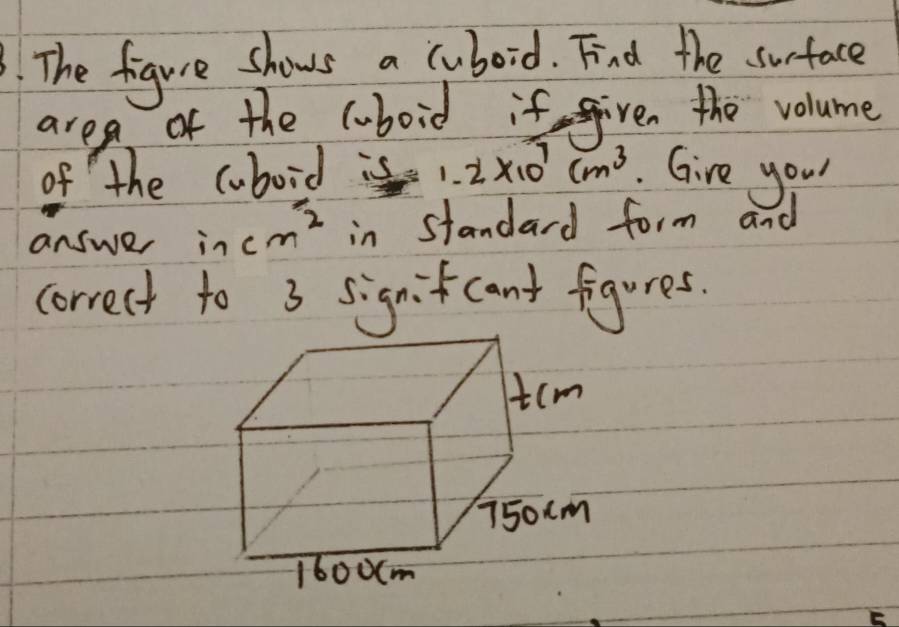 3. The figure shows a cuboid. Find the surface
area of the cuboid if given the volume
of the cuboid is 1.2 × 10⁷ cm³. Give your
answer in cm² in standard form and
correct to 3 significant figures.
t cm
750 cm
1600 cm
5